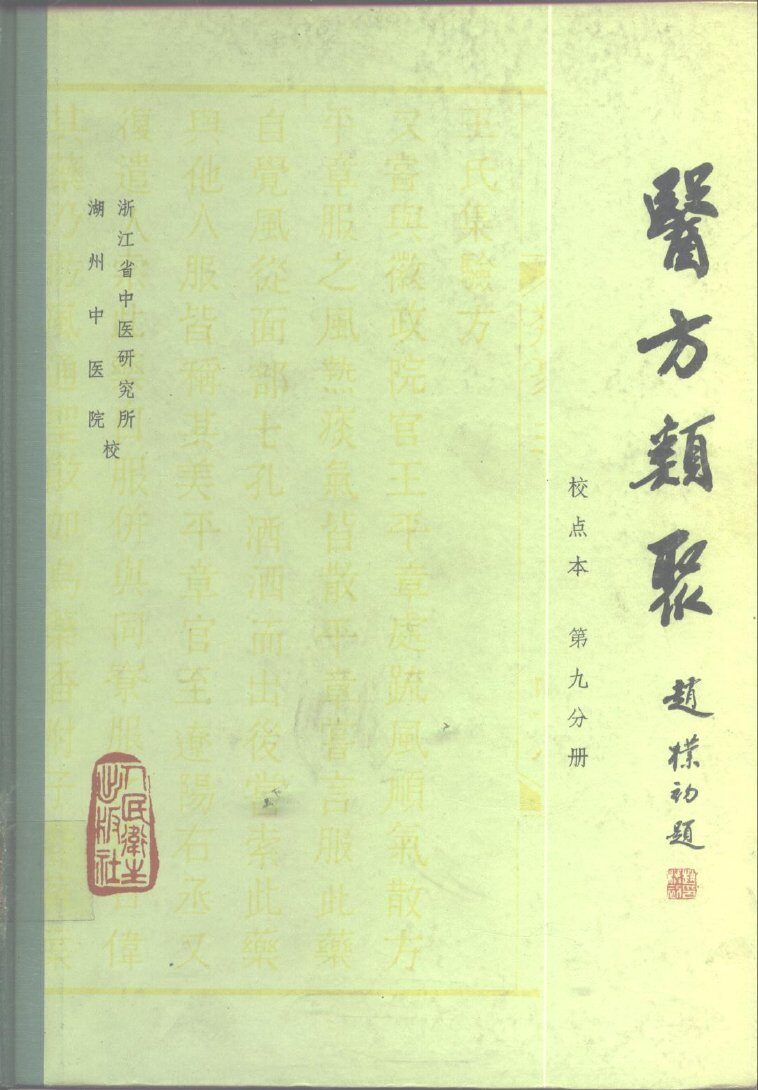 醫方類聚
趙樸初題
校点本 第九分册
王氏集驗方
又嘗與徽政院官王平章庭疏風順氣散方
平章服之風熱痰氣皆散平章官言服此藥
自覺風從面部七孔洒洒而出後嘗索此藥
與他人服皆稱其美平章官至遼陽右丞又
浙江省中医研究所
湖州中医院
校
人民衛生
出版社